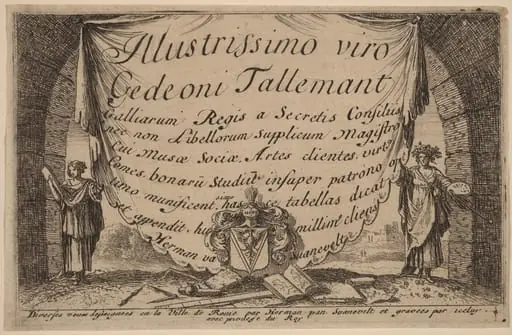 Illustrissimo viro
Gedeoni Tallemant
Galliarum Regis a Secretis Consiliis
nec non Libellorum Supplicum Magistro
Cui Musæ Sociæ, Artes clientes, virtus
Comes, bonarū Studiis insuper patrono op
timo munificent.simo has ce tabellas dicat
et appendit humillim' cliens
Herman van Suanevelt
Diverses veues desseignées en la Ville de Rome par Herman van Suanevelt et gravées par icelui
avec privilege du Roy